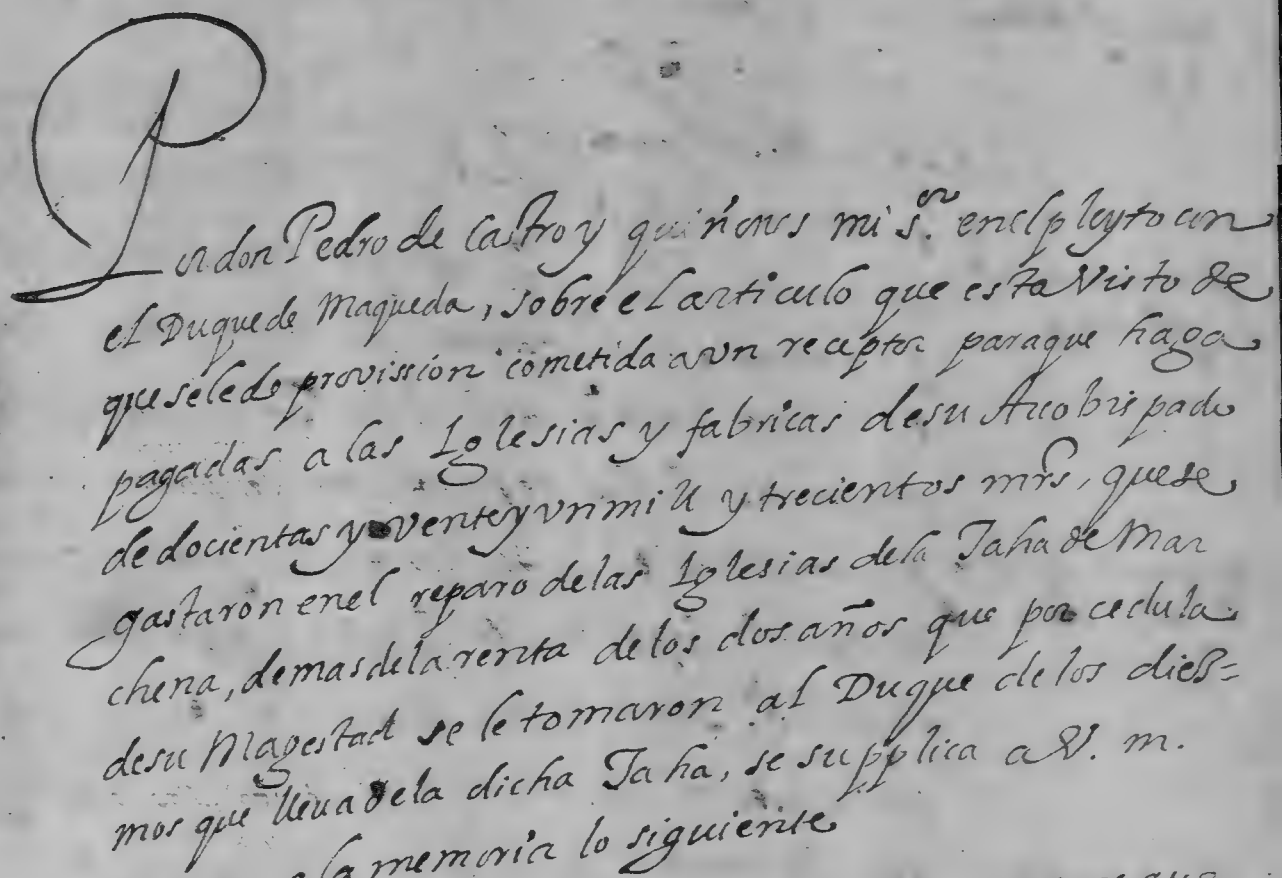 Por don Pedro de Castro y quiñones mi s.or enel pleyto con
el Duque de Maqueda, sobre el articulo que esta Visto de
que se le de provission cometida a un receptor para que haga
pagadas a las Iglesias y fabricas de su Arcobispado
de docientas y veinte y un mill y trecientos mrs, que se
gastaron en el reparo de las Iglesias de la Taha de Mar
chena, demas de la renta de los dos años que por cedula
de su Magestad se le tomaron al Duque de los dies=
mos que lleua de la dicha Taha, se supplica a V. m.
la memoria lo siguiente